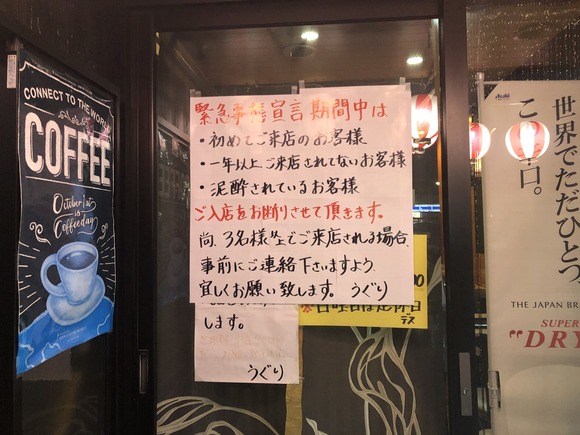 CONNECT TO THE WORLD
COFFEE
October 1st
is
Coffee day
緊急事態宣言期間中は
・初めてご来店のお客様
・一年以上ご来店されてないお客様
・泥酔されているお客様
ご入店をお断りさせて頂きます。
尚、3名様以上でご来店される場合、
事前にご連絡下さいますよう
宜しくお願い致します。うぐり
します。
うぐり
00
※日曜日は定休日
デス
Asahi
世界でただひとつ
口。
THE JAPAN BR
SUPER
"DRY